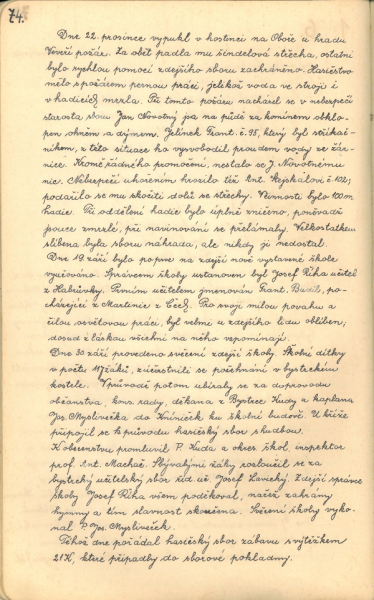 74.
Dne 22. prosince vypukl v hostinci na Oboře u hradu
Veveří požár. Za oběť padla mu šindelová střecha, ostatní
bylo rychlou pomocí zdejšího sboru zachráněno. Hasičstvo
mělo s požárem pernou práci, jelikož voda ve stroji i
v hadicích mrzla. Při tomto požáru nacházel se v nebezpečí
starosta sboru Jan Novotný jsa na půdě za komínem obklo-
pen ohněm a dýmem. Jelínek Frant. č. 95, který byl stříkač-
níkem, z této situace ho vysvobodil proudem vody ze žár-
nice. Kromě řádného promočení, nestalo se J. Novotnému
nic. Nebezpečí uhořením hrozilo též Ant. Hejskálovi č. 102;
podařilo se mu skočiti dolů se střechy. V činnosti bylo 100 m
hadic. Při oddělení hadic bylo úplně zničeno, poněvadž
jsouce zmrzlé, při navinování se přelámaly. Velkostatkem
slíbena byla sboru náhrada, ale nikdy jí nedostal.
Dne 19. září bylo poprvé na zdejší nově vystavené škole
vyučováno. Správcem školy ustanoven byl Josef Říha učitel
z Habrůvky. Prvním učitelem jmenován Frant. Budil, po-
cházející z Martinic v Čech. Pro svoji milou povahu a
čilou osvětovou práci, byl velmi u zdejšího lidu oblíben;
dosud z láskou všichni na něho vzpomínají.
Dne 30. září provedeno svěcení zdejší školy. Školní dítky
v počtu 117 žáků, zúčastnili se požehnání v bystrckém
kostele. V průvodě potom ubíraly se za doprovodu
občanstva, kons. rady, děkana z Bystrce Kudy a kaplana
Jos. Myslivečka do Kníniček ku školní budově. U kříže
připojil se k průvodu hasičský sbor s hudbou.
K obecenstvu promluvil P. Kuda a okres. škol. inspektor
prof. Ant. Machač. S bývalými žáky rozloučil se za
bystrcký učitelský sbor říd. uč. Josef Lavický. Zdejší správce
školy Josef Říha všem poděkoval, načež zahrány
hymny a tím slavnost skončena. Svěcení školy vyko-
nal P. Jos. Myslivček.
Téhož dne pořádal hasičský sbor zábavu s výtěžkem
21 K, které připadly do sborové pokladny.